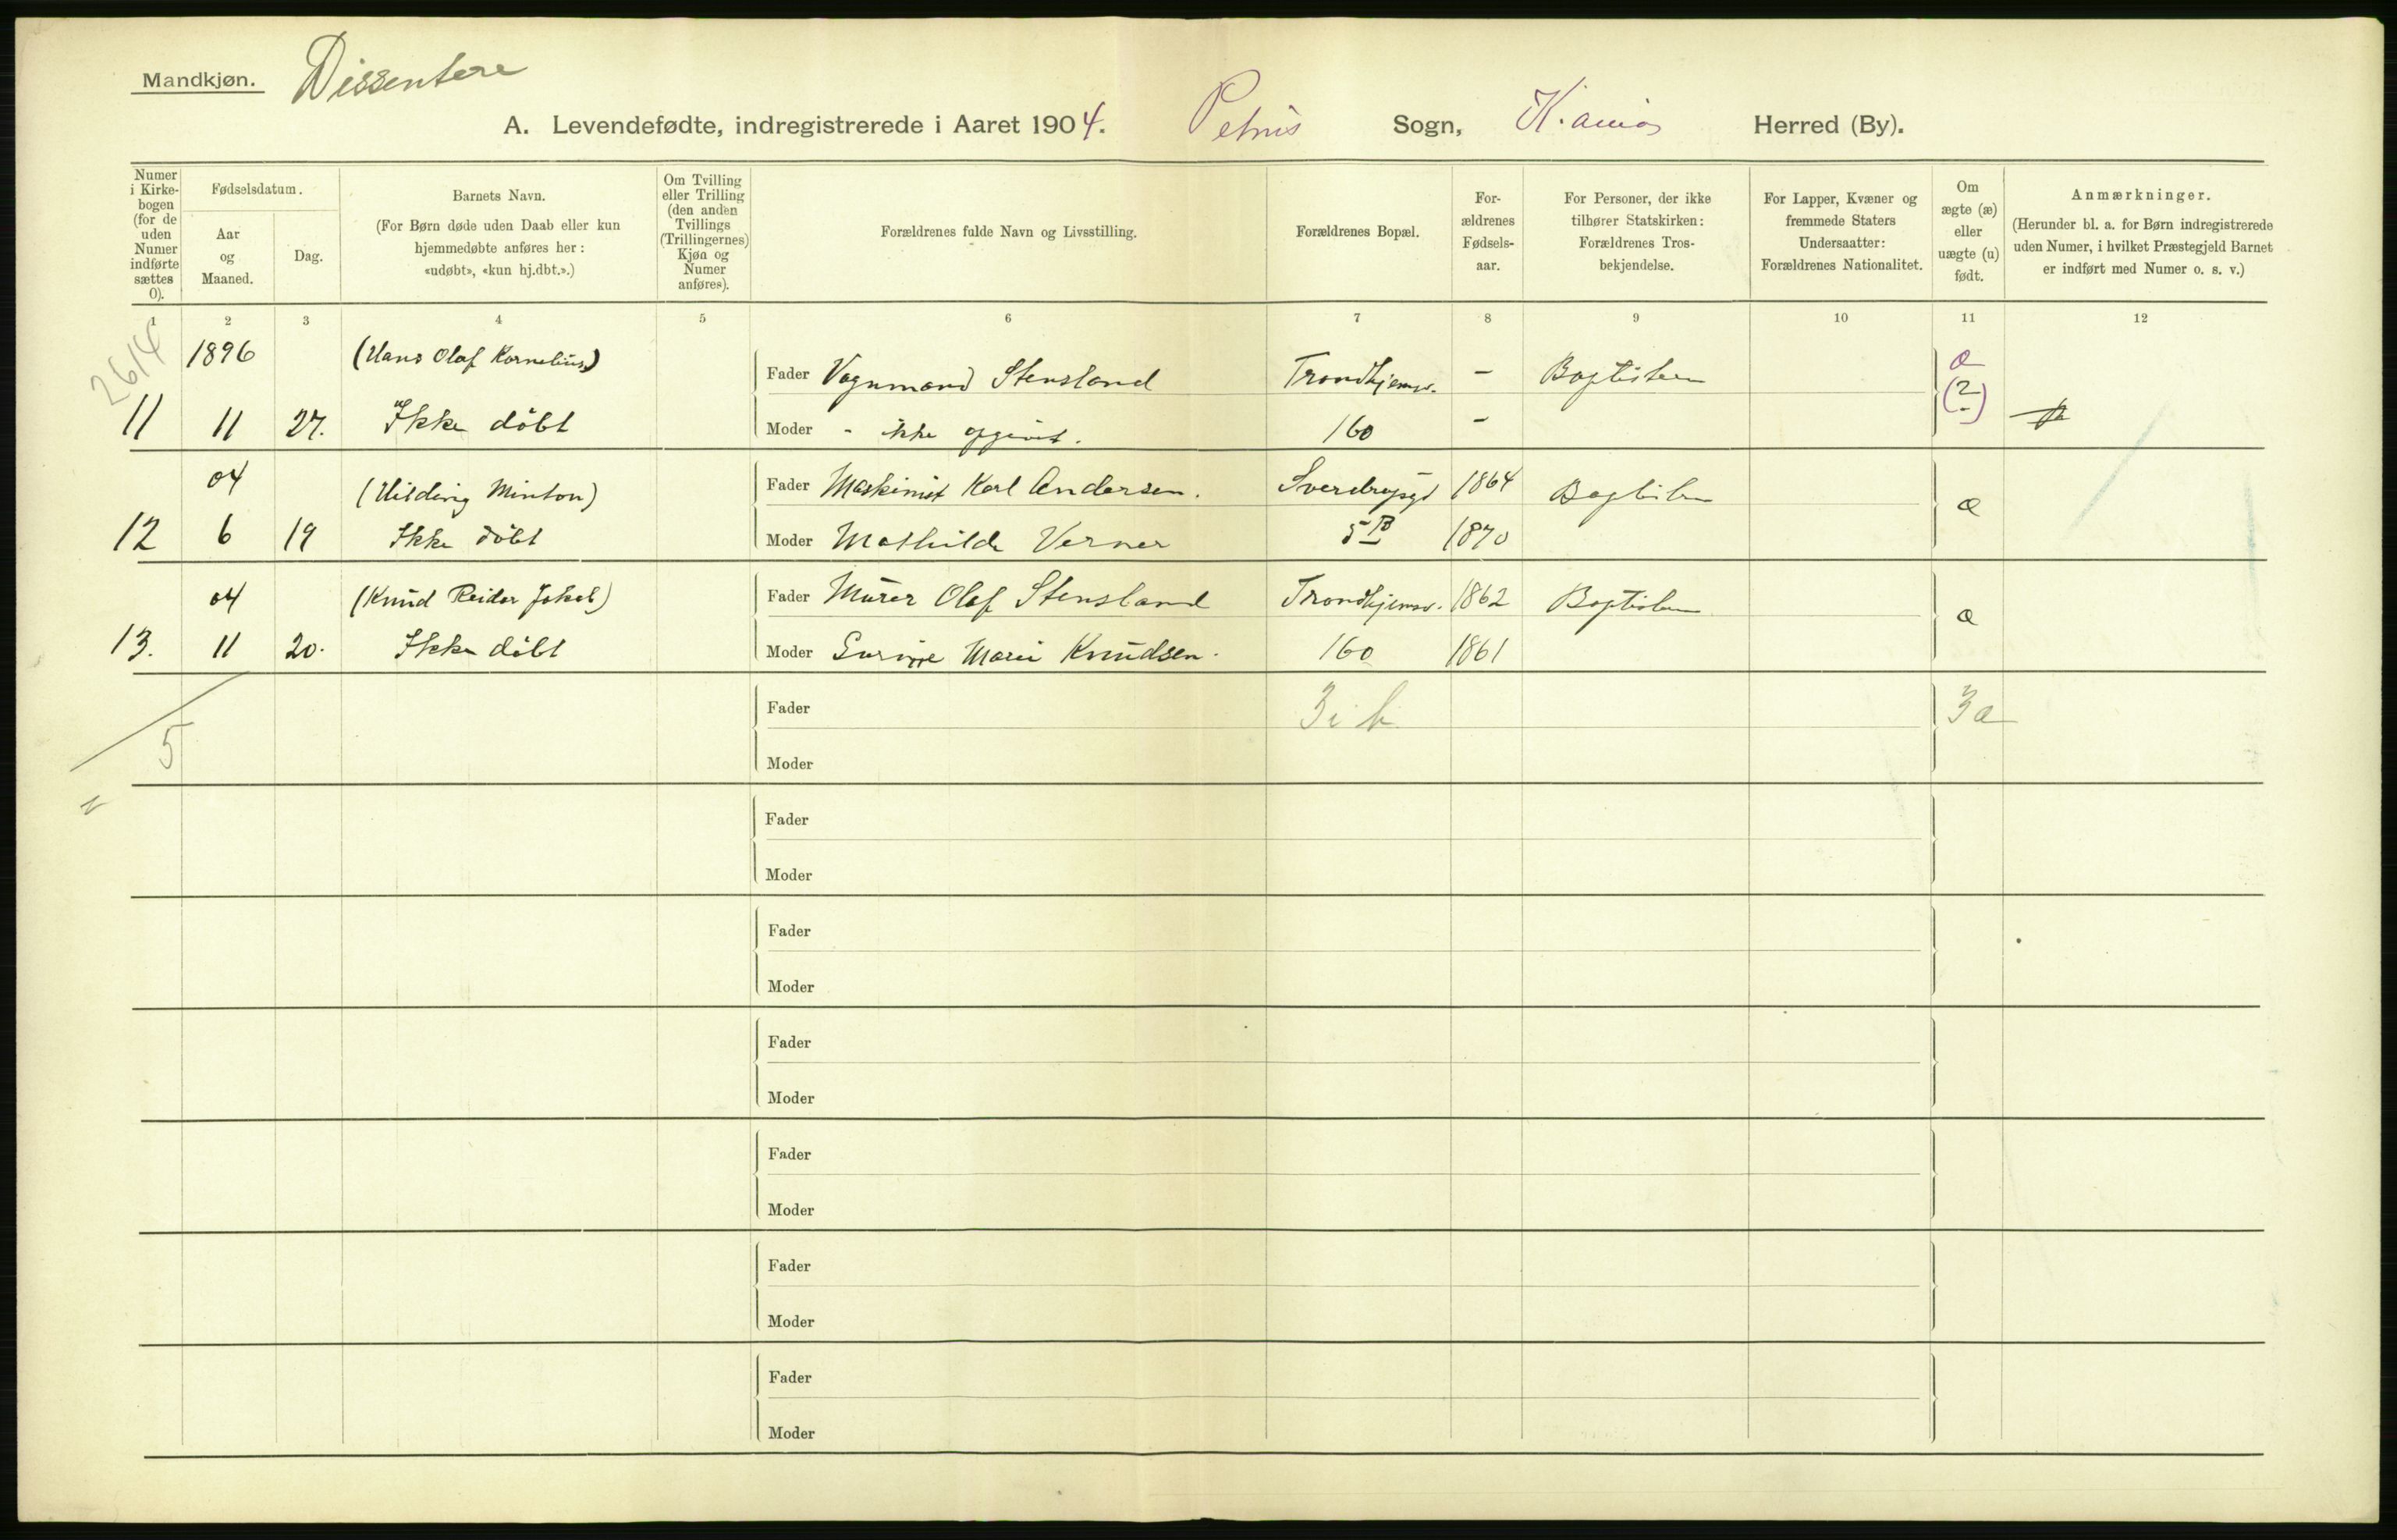 Mandkjøn. Dissentere
A. Levendefødte, indregistrerede i Aaret 1904. Petrus Sogn, Herred (By).
Numer i Kirkebogen (for de uden Numer indførte sættes 0).
Fødselsdatum.
Aar og Maaned.
Dag.
Barnets Navn.
(For Børn døde uden Daab eller kun hjemmedøbte anføres her:
«udøbt», «kun hj.dbt.».)
Om Tvilling eller Trilling (den anden Tvillings (Trillingernes) Kjøn og Numer anføres).
Forældrenes fulde Navn og Livsstilling.
Forældrenes Bopæl.
For-ældrenes Fødsels-aar.
For Personer, der ikke tilhører Statskirken: Forældrenes Tros-bekjendelse.
For Lapper, Kvæner og fremmede Staters Undersaatter: Forældrenes Nationalitet.
Om ægte (æ) eller uægte (u) født.
Anmærkninger.
(Herunder bl. a. for Børn indregistrerede uden Numer, i hvilket Præstegjeld Barnet er indført med Numer o. s. v.)
1 2 3 4 5 6 7 8 9 10 11 12
2614
1896 (Hans Olaf Kornelius)
Fader Vognmand Stensland Trondhjemsv. - Baptisten æ
(?)
11 11 27. Ikke döbt Moder - ikke opgivet. 160 -
04 (Hilding Minton) Fader Maskinist Karl Andersen. Sverdrupsgd 1864 Baptisten æ
12 6 19 Ikke döbt Moder Mathilde Verner 5 B 1870
04 (Knud Reidar Jakob) Fader Murer Olaf Stensland Trondhjemsv. 1862 Baptisten æ
13. 11 20. Ikke döbt Moder Marie Knudsen. 160 1861
Fader 3 i b 3 æ
5
Moder
Fader
Moder
Fader
Moder
Fader
Moder
Fader
Moder
Fader
Moder
Fader
Moder